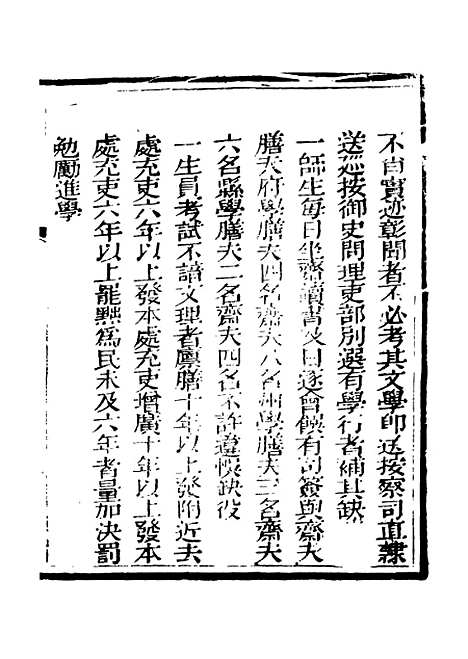 不肖實迹彰聞者不必考其文學卽送按察司直隸
送巡按御史問理吏部別選有學行者補其缺
一師生每日坐齋讀書次日逐會饌有司簽與齋夫
膳夫府學膳夫四名齋夫八名州學膳夫三名齋夫
六名縣學膳夫二名齋夫四名不許違悞缺役
一生員考試不諳文理者廩膳十年以上發附近去
處充吏六年以上發本處充吏增廣十年以上發本
處充吏六年以上罷黜爲民未及六年者量加決罰
勉勵進學